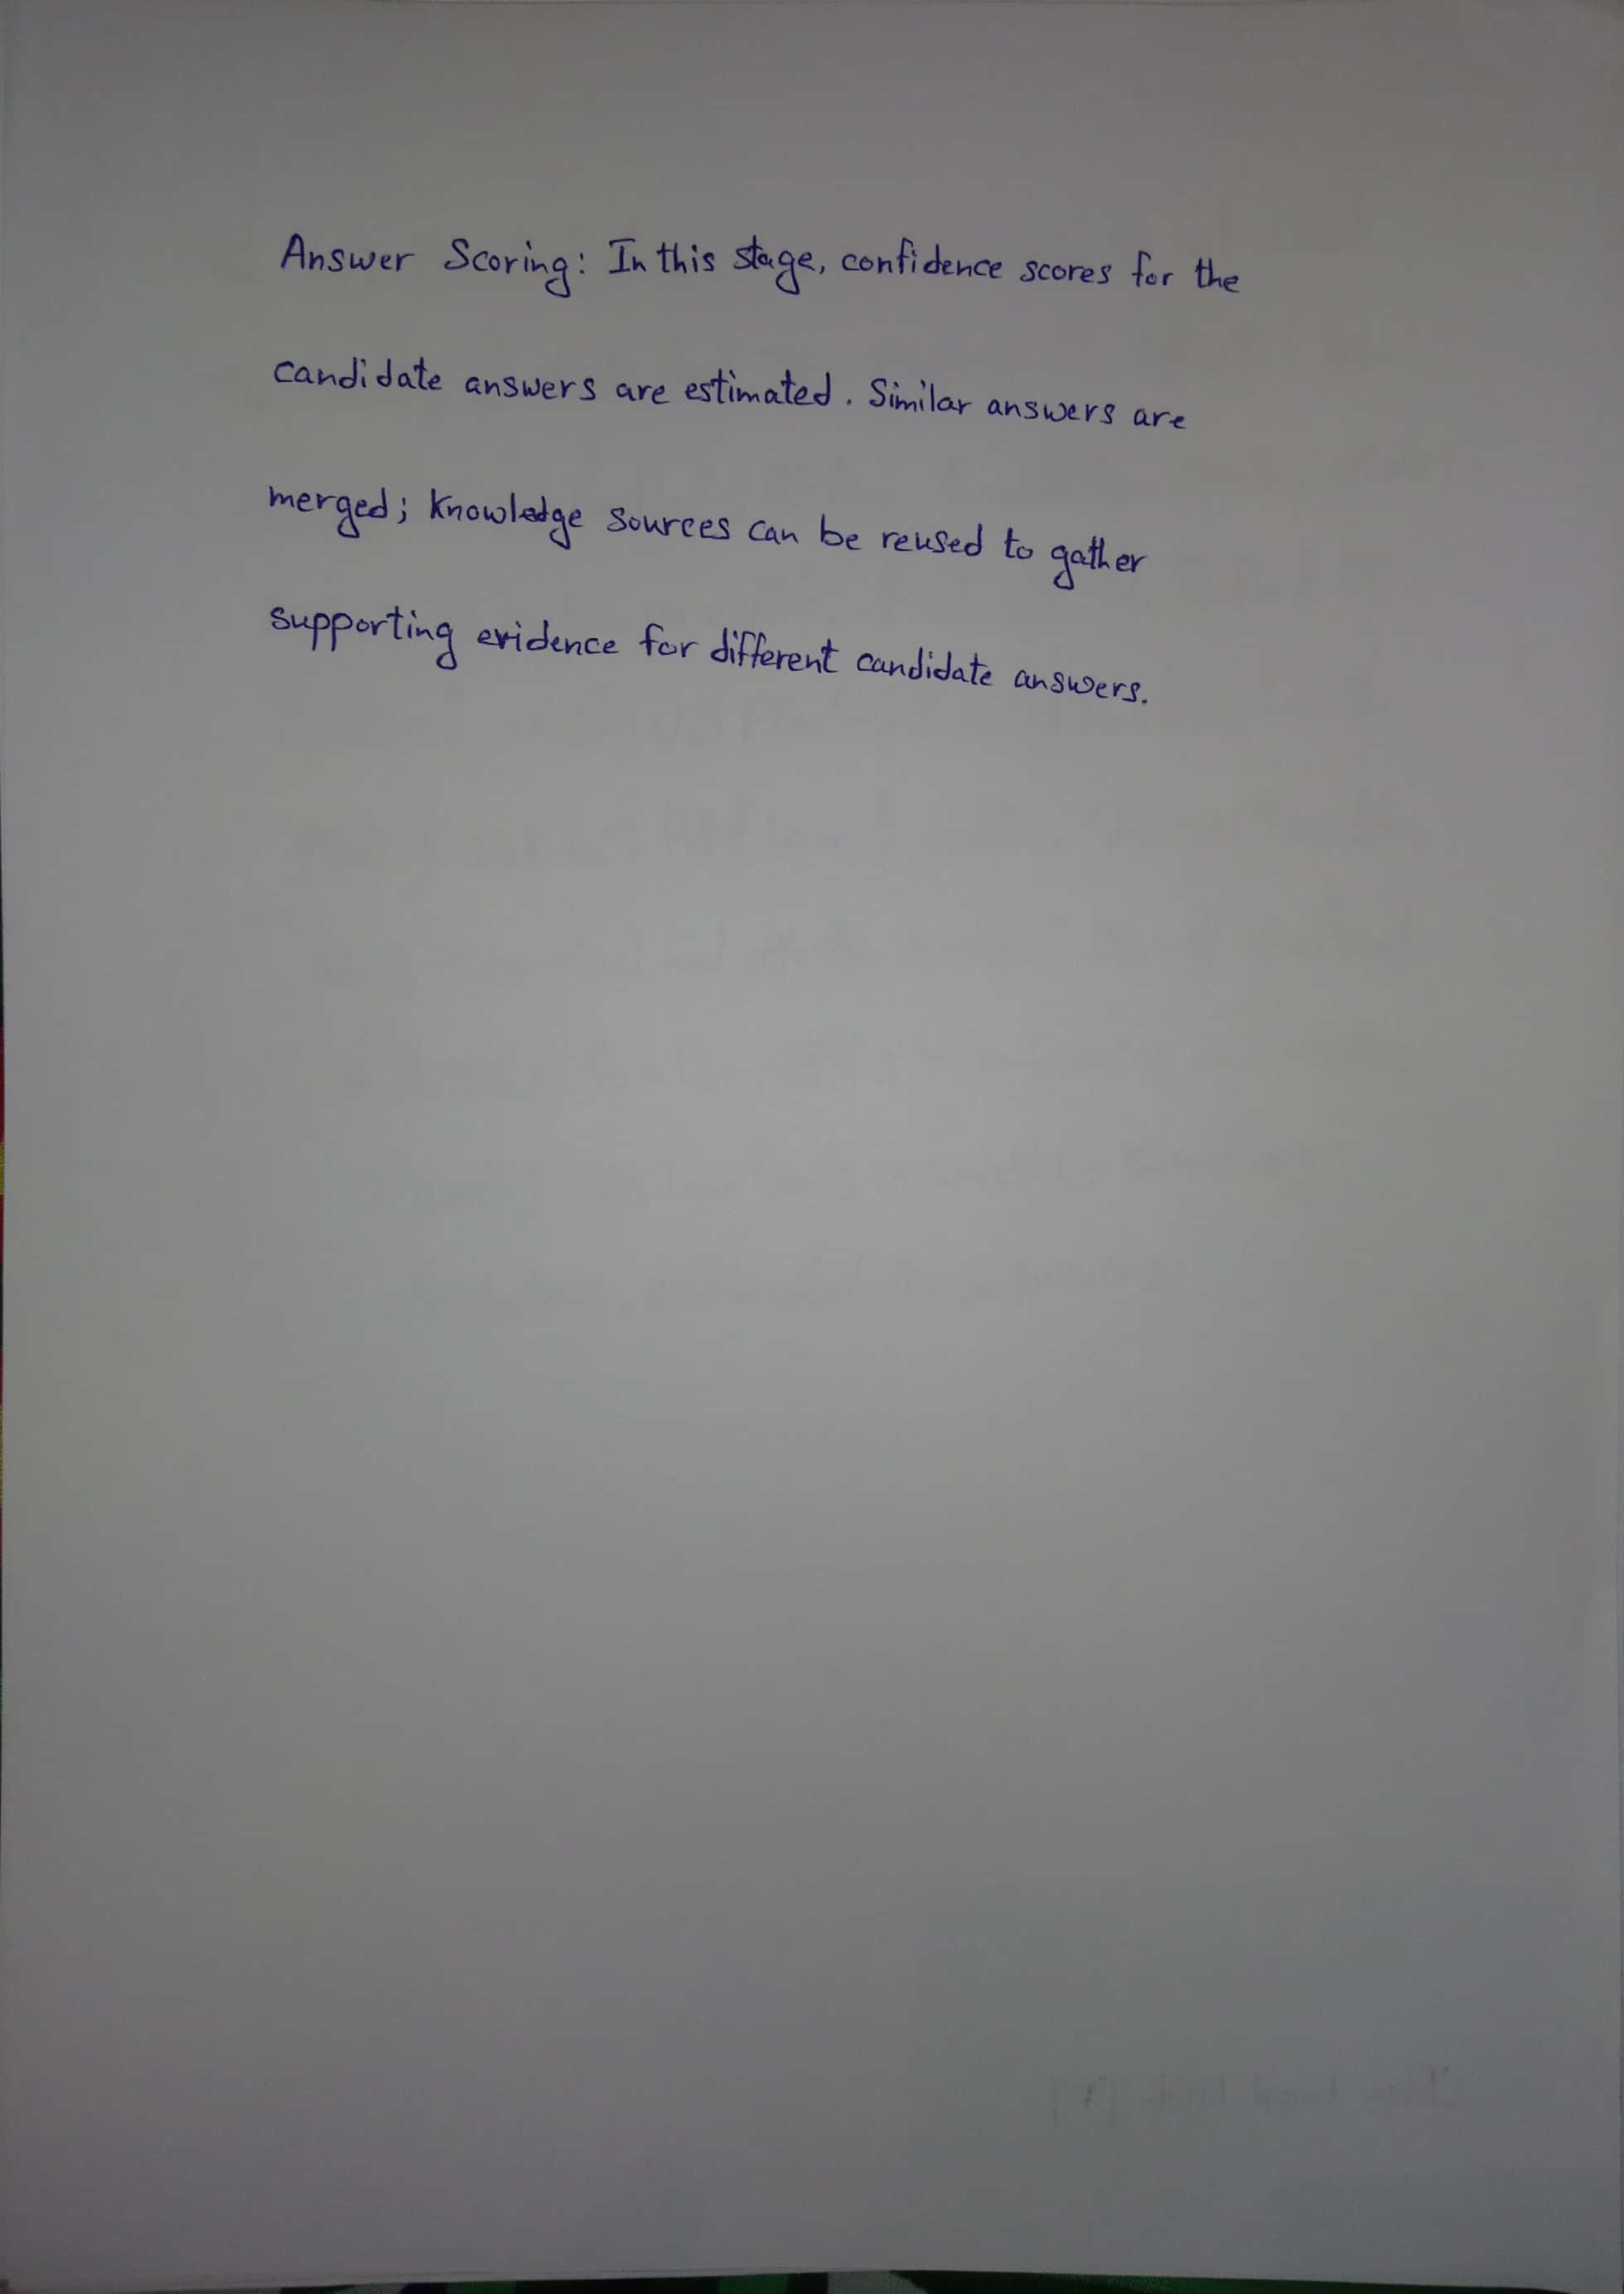 Answer Scoring: In this stage, confidence scores for the
candidate answers are estimated. Similar answers are
merged; knowledge sources can be reused to gather
supporting evidence for different candidate answers.